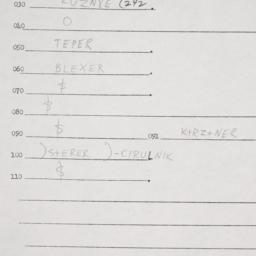 030 KUZNYE (242
040 O
050 TEPER
060 BLEXER
070 $
080 $
090 $ 091 KIRZHNER
100 )STERER )-CIRULNIK
110 $